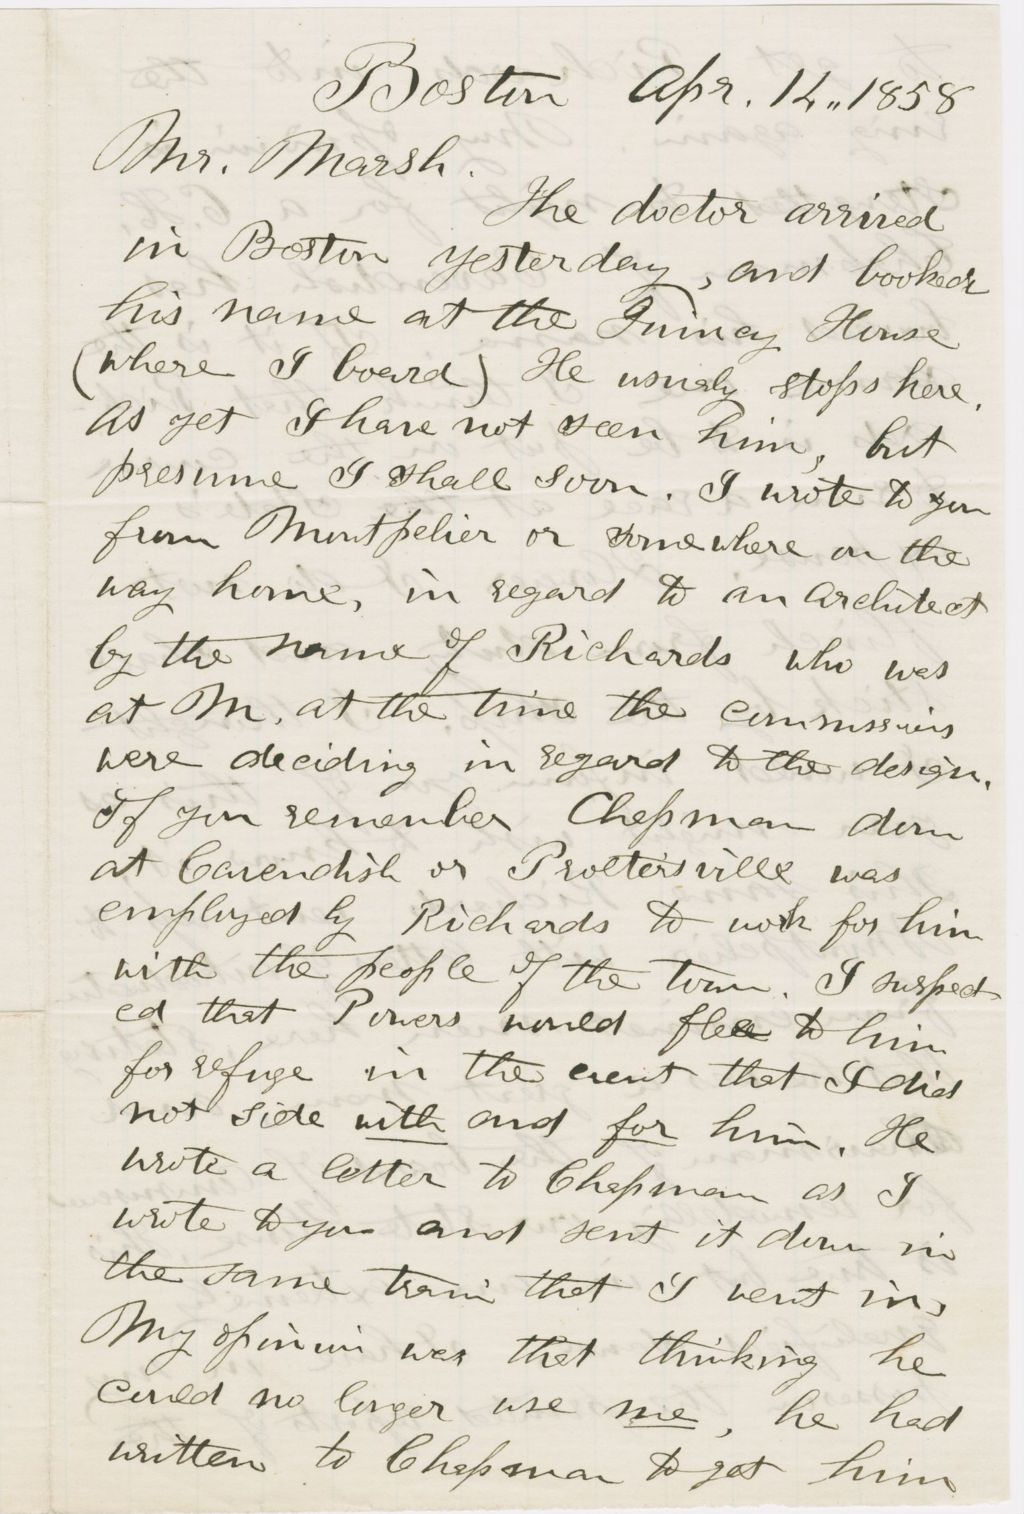 Boston Apr. 14, 1858
Mr. Marsh.
The doctor arrived
in Boston yesterday, and booked
his name at the Quincy House
(where I board) He usualy stops here.
As yet I have not seen him, but
presume I shall soon. I wrote to you
from Montpelier or somewhere on the
way home, in regard to an architect
by the name of Richards who was
at M. at the time the commissins
were deciding in regard to the design.
If you remember Chapman down
at Cavendish or Proctorsville was
employed by Richards to work for him
with the people of the town. I suspect
ed that Powers would flee to him
for refuge in the event that I did
not side with and for him. He
wrote a letter to Chapman as I
wrote to you and sent it down in
the same train that I went in,
My opinion was that thinking he
could no longer use me, he had
written to Chapman to get him